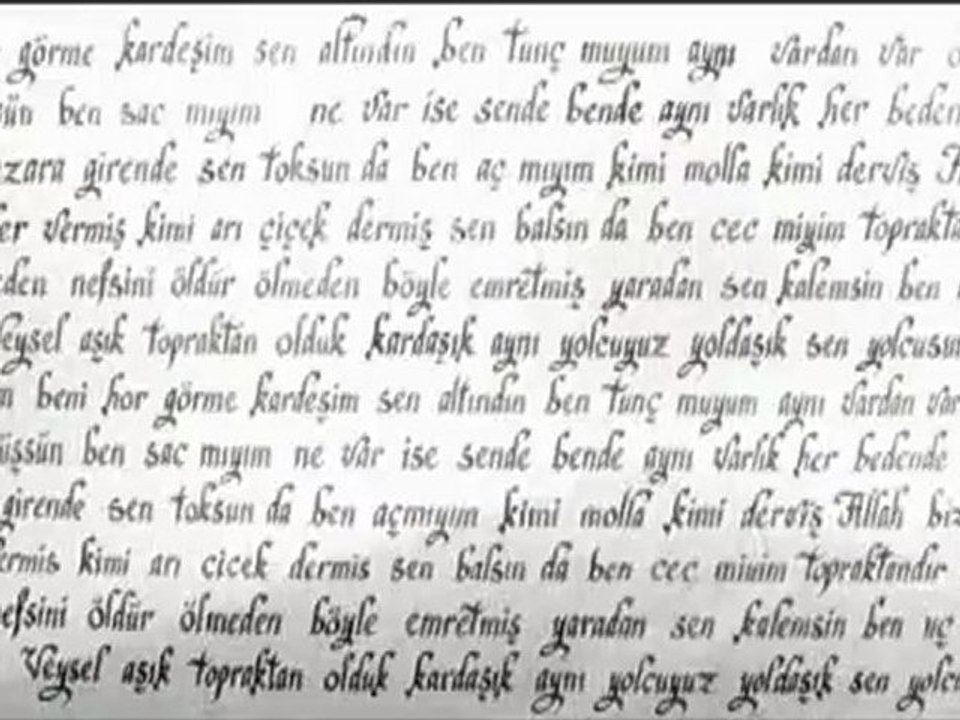 görme kardeşim sen altındın ben tunç muyum aynı vardan var
ben sac mıyım ne var ise sende bende aynı varlık her beden
girende sen toksun da ben aç mıyım kimi molla kimi derviş
vermiş kimi arı çiçek dermiş sen balsın da ben cec miyim toprakta
nefsini öldür ölmeden böyle emretmiş yaradan sen kalemsin ben
aşık topraktan olduk kardaşık aynı yolcuyuz yoldaşık sen yolcusun
beni hor görme kardeşim sen altındın ben tunç muyum aynı vardan
ben sac mıyım ne var ise sende bende aynı varlık her bedende
girende sen toksun da ben açmıyım kimi molla kimi derviş Allah biz
kimi arı cicek dermis sen balsın da ben cec miyim topraktandır
nefsini öldür ölmeden böyle emretmiş yaradan sen kalemsin ben uç
Veysel aşık topraktan olduk kardaşık aynı yolcuyuz yoldaşık sen